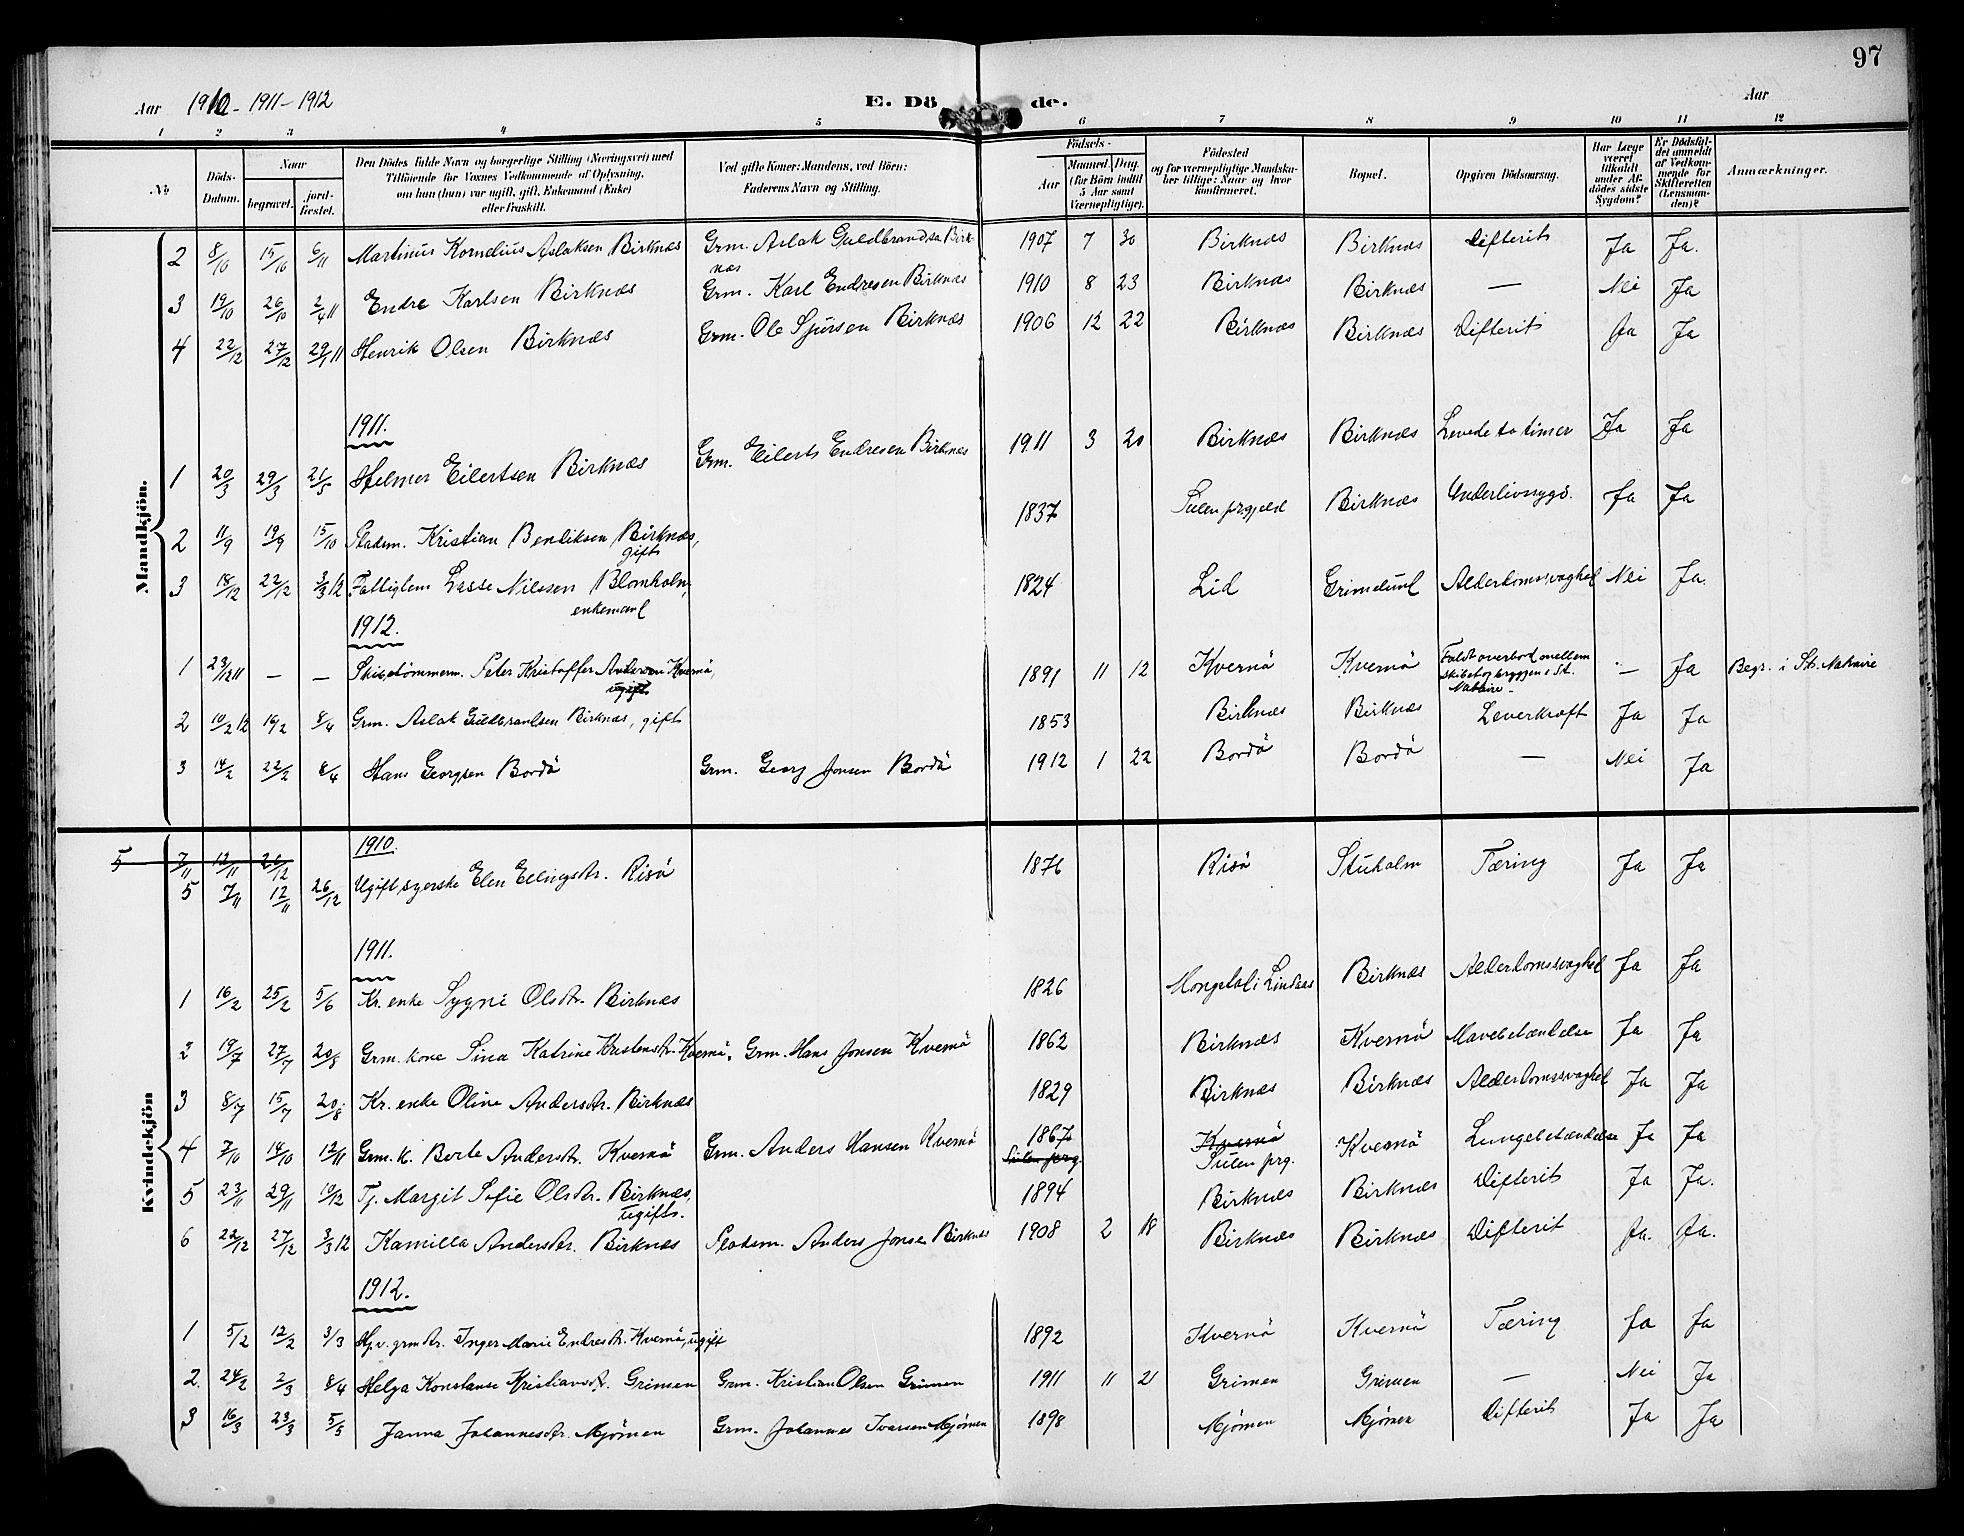 97
Aar 1910 - 1911 - 1912 E. Dö de. Aar
1 2 3 4 5 6 7 8 9 10 11 12
No Döds-Datum. Naar begravet. jord-fæstet. Den Dödes fulde Navn og borgerlige Stilling (Næringsvei) med Tilföiende for Voxnes Vedkommende af Oplysning, om han (hun) var ugift, gift, Enkemand (Enke) eller fraskilt. Ved gifte Koner: Mandens, ved Börn: Faderens Navn og Stilling. Födsels- Aar Maaned. Dag. (for Börn indtil 5 Aar samt Værnepligtige). Födested og for værnepligtige Mandskaber tillige: Naar og hvor konfirmeret. Bopæl. Opgiven Dödsaarsag. Har Læge været tilkaldt under Afdödes sidste Sygdom? Er Dödsfaldet anmeldt af Vedkommende for Skifteretten (Lensmanden)? Anmærkninger.
Mandkjön.
2 8/10 15/10 6/11 Martinus Kornelius Aslaksen Birknæs Grm. Aslak Guldbrandsn Birknæs 1907 7 30 Birknæs Birknæs Difterit Ja Ja.
3 19/10 26/10 2/4 11 Endre Karlsen Birknæs Grm. Karl Endresen Birknæs 1910 8 23 Birknæs Birknæs — Nei Ja
4 22/12 27/12 29/1 11 Henrik Olsen Birknæs Grm. Ole Sjursen Birknæs 1906 12 22 Birknæs Birknæs Difterit Ja Ja
1911.
1 20/3 29/3 21/5 Helmer Eilertsen Birknæs Grm. Eilert Endresen Birknæs 1911 3 20 Birknæs Birknæs Levede to timer Ja Ja
2 11/9 19/9 15/10 Pladsm. Kristian Bendiksen Birknæs, gift 1837 Sulen prgjeld Birknæs Underlivssygd. Ja Ja
3 18/12 22/12 3/3 12 Fattiglem Lasse Nilssen Blomholm, enkemand 1824 Lid Grimelund Alderdomssvaghed Nei Ja.
1912.
1 23/12 11 — — Skibstømmerm. Peter Kristoffer Andersen Kvernö, ugift 1891 11 12 Kvernö Kvernö Faldt overbord mellem skibet og bryggen i St. Nazaire — — Ja Begr. i St. Nazaire
2 10/2 12 19/2 8/4 Grm. Aslak Guldbrandsen Birknæs, gift 1853 Birknæs Birknæs Leverkræft Ja Ja
3 14/2 22/2 8/4 Hans Georgsen Bordö Grm. Georg Jonsen Bordö 1912 1 22 Bordö Bordö — Nei Ja
Kvindekjön
1910.
5 7/11 12/11 26/12
5 7/11 12/11 26/12 Ugift syerske Elen Ellingsdtr. Risö 1876 Risö Stuholm Tæring Ja Ja
1911.
1 16/2 25/2 5/6 Kr. enke Sygne Olsdtr. Birknæs 1826 Mongstad i Lindaas Birknæs Alderdomssvaghed Ja Ja
2 19/7 27/7 20/8 Grm. kone Sina Katrine Kristensdtr. Kvernö, Grm. Hans Jonsen Kvernö 1862 Birknæs Kvernö Mavebetændelse Ja Ja
3 8/7 15/7 20/8 Kr. enke Oline Andersdtr. Birknæs 1829 Birknæs Birknæs Alderdomssvaghed Ja Ja
4 7/10 14/10 12/11 Grm. k. Berte Andersdtr. Kvernö Grm. Anders Hansen Kvernö 1867 Sulen prg. Kvernö Sulen prg. Kvernö Lungebetændelse Ja Ja
5 23/11 29/11 10/12 Tj. Margit Sofie Olsdtr. Birknæs, ugift. 1894 Birknæs Birknæs Difterit Ja Ja.
6 22/12 27/12 3/3 12 Kamilla Andersdtr. Birknæs Pladsm. Anders Jonsen Birknæs 1908 2 18 Birknæs Birknæs Difterit Ja. Ja.
1912.
1 5/2 12/2 3/3 Hj.v. grmdtr. Inger Marie Endresdtr. Kvernö, ugift 1892 Kvernö Kvernö Tæring Ja Ja
2. 24/2 2/3 8/4 Helga Konstanse Kristiansdtr. Grimen Grm. Kristian Olsen Grimen 1911 11 21 Grimen Grimen — Nei Ja
3 16/3 23/3 5/5 Janna Johannesdtr. Mjömen Grm. Johannes Ivarsen Mjömen 1898 Mjömen Mjömen Difterit Ja Ja